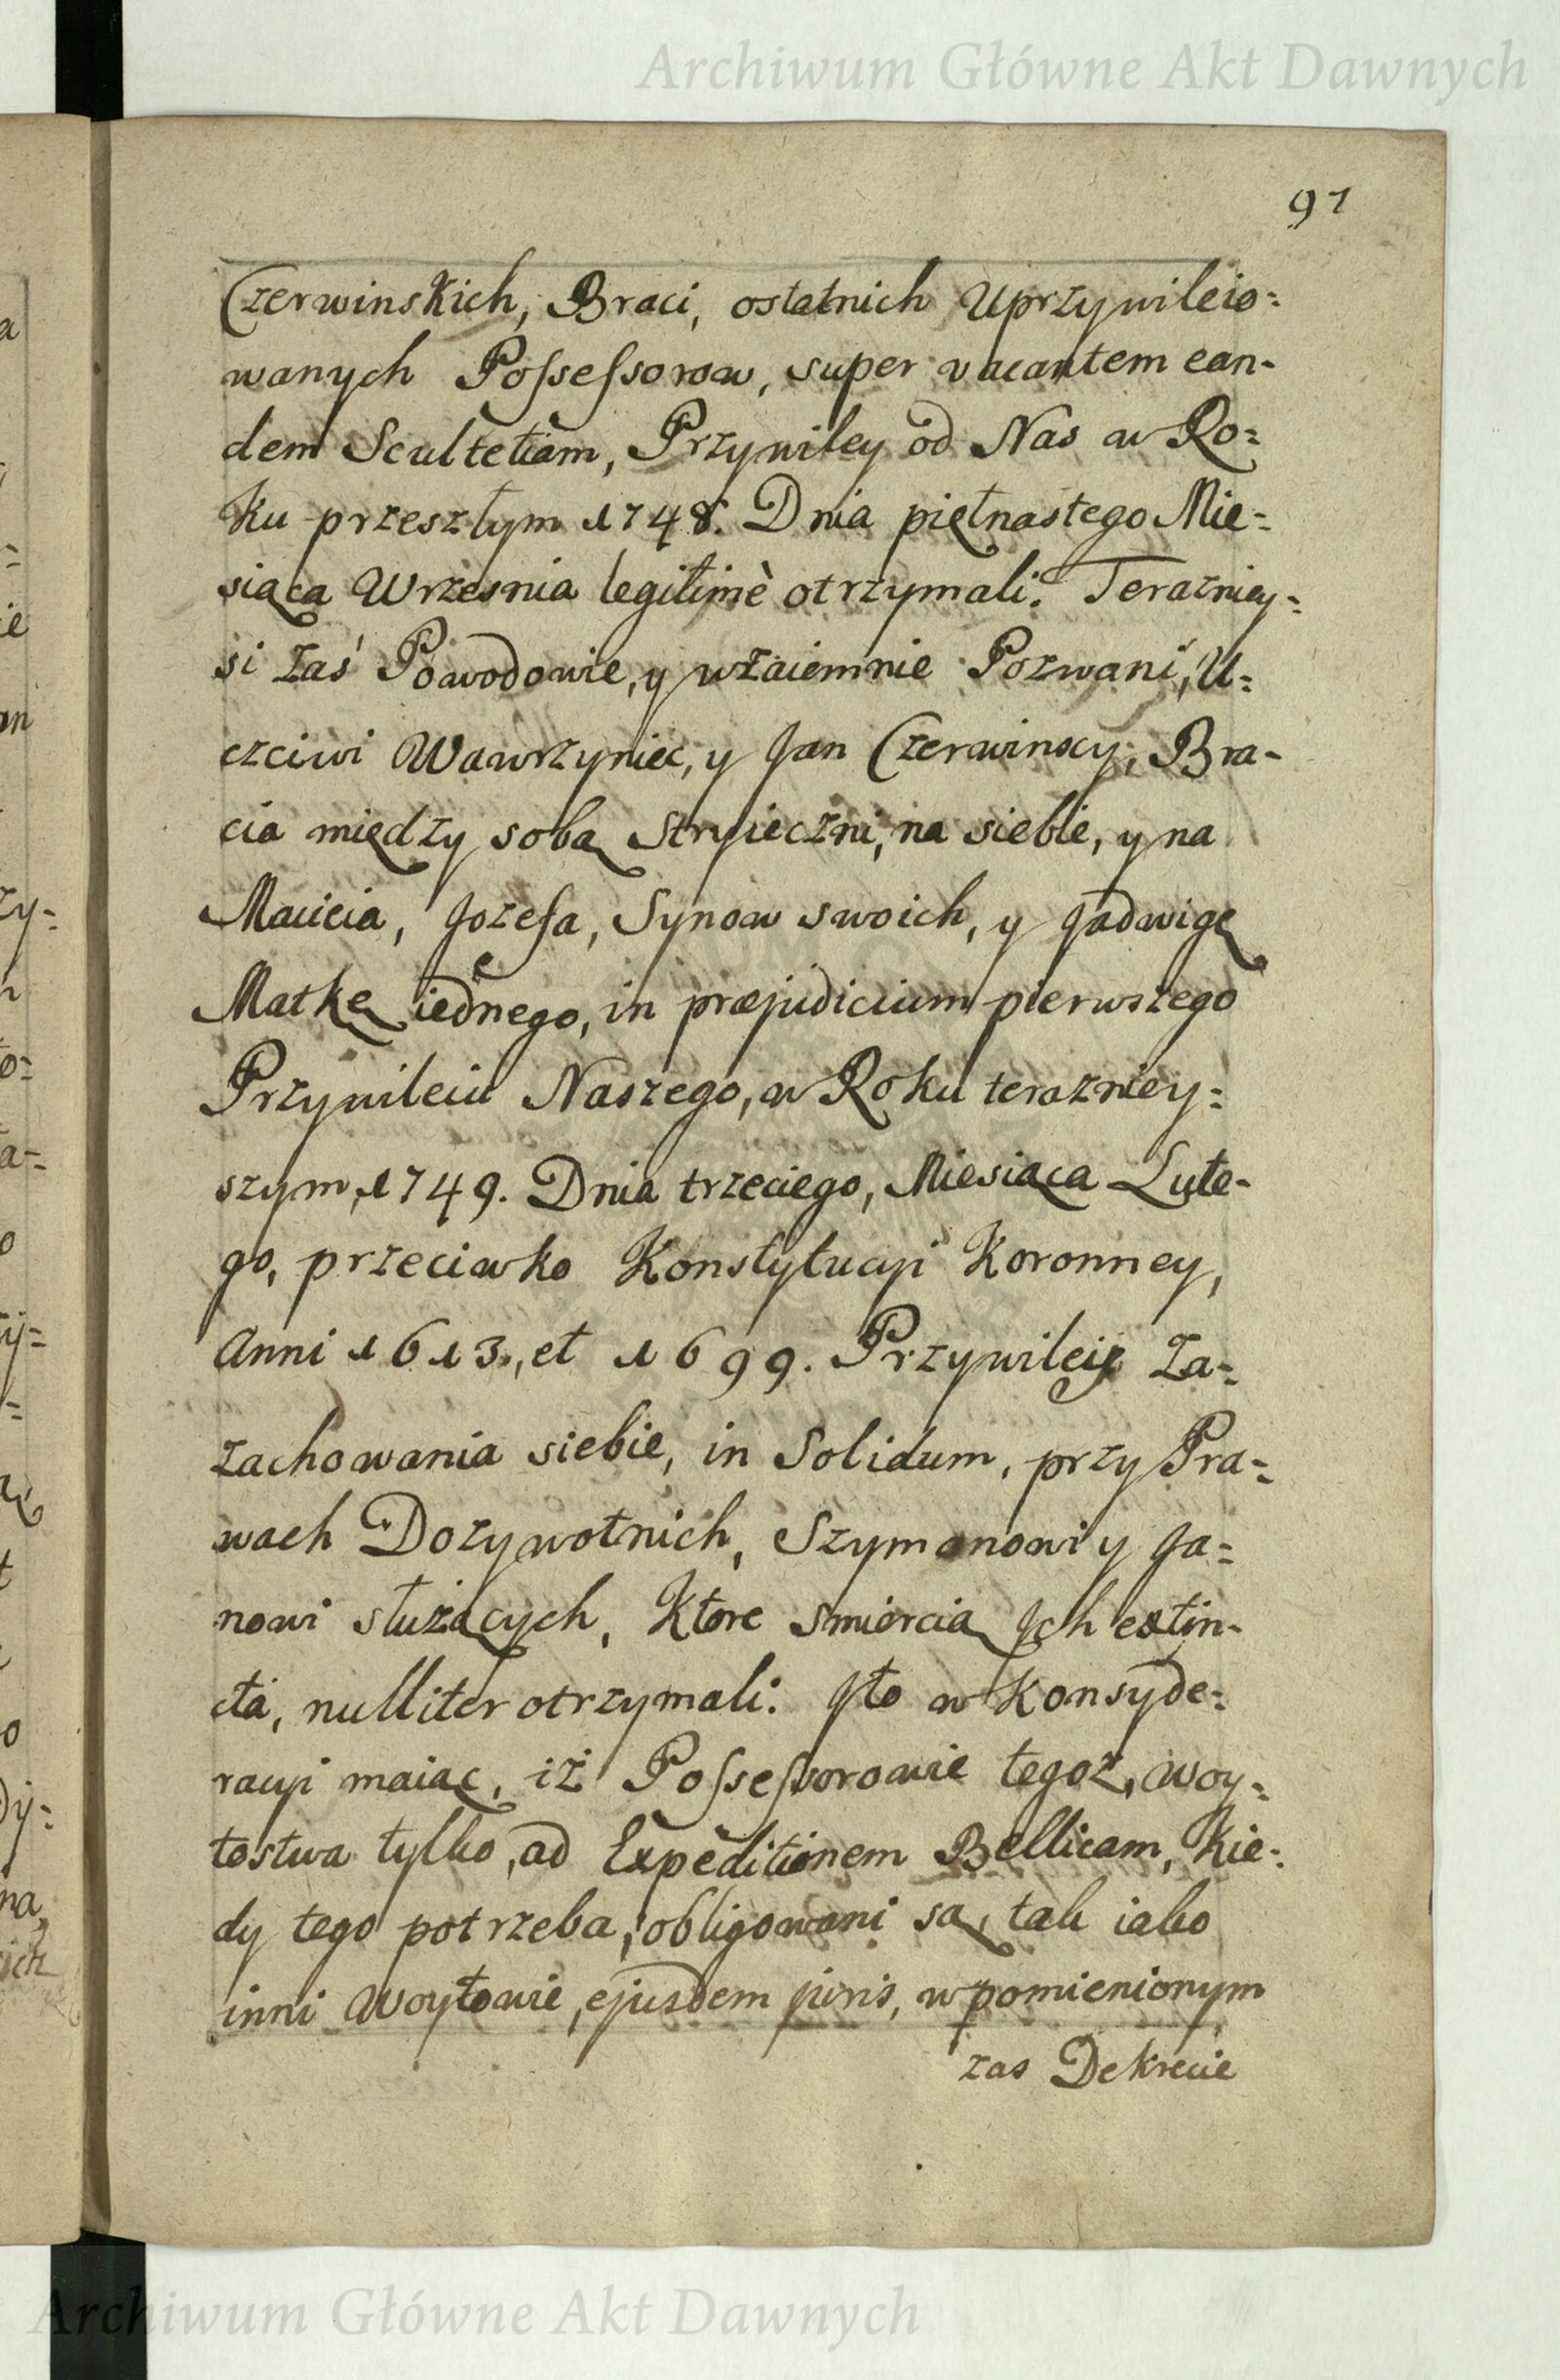 Archiwum Główne Akt Dawnych
91
Czerwinskich, Braci, ostatnich Uprzywileio=
wanych Poſseſsorow, super vacantem ean-
dem Scultetiam, Przywiley od Nas w Ro=
ku przeszłym 1748. Dnia piętnastego Mie=
siąca Wrzesnia legitimè otrzymali. Terazniey=
si zaś Powodowie, y wzaiemnie Pozwani, U=
czciwi Wawrzyniec, y Jan Czerwinscy, Bra-
cia między sobą Stryieczni, na siebie, y na
Macieia, Jozefa, Synow swoich, y Jadwigę
Matkę iednego, in præjudicium pierwszego
Przywileiu Naszego, w Roku terazniey=
szym, 1749. Dnia trzeciego, Miesiąca Lute-
go, przeciwko Konstytucyi Koronney,
Anni 1613., et 1699. Przywileie Za=
zachowania siebie, in Solidum, przy Pra=
wach Dozywotnich, Szymonowi y Ja=
nowi służących, Ktore smiercią Jch extin-
cta, nulliter otrzymali. Jto w Konsyde=
racyi maiąc, iż Poſseſsorowie tegoz, Woy=
tostwa tylko, ad Expeditionem Bellicam, Kie=
dy tego potrzeba, obligowani są, tak iako
inni Woytowie, ejusdem juris, wpomienionym
zas Dekrecie
Archiwum Główne Akt Dawnych